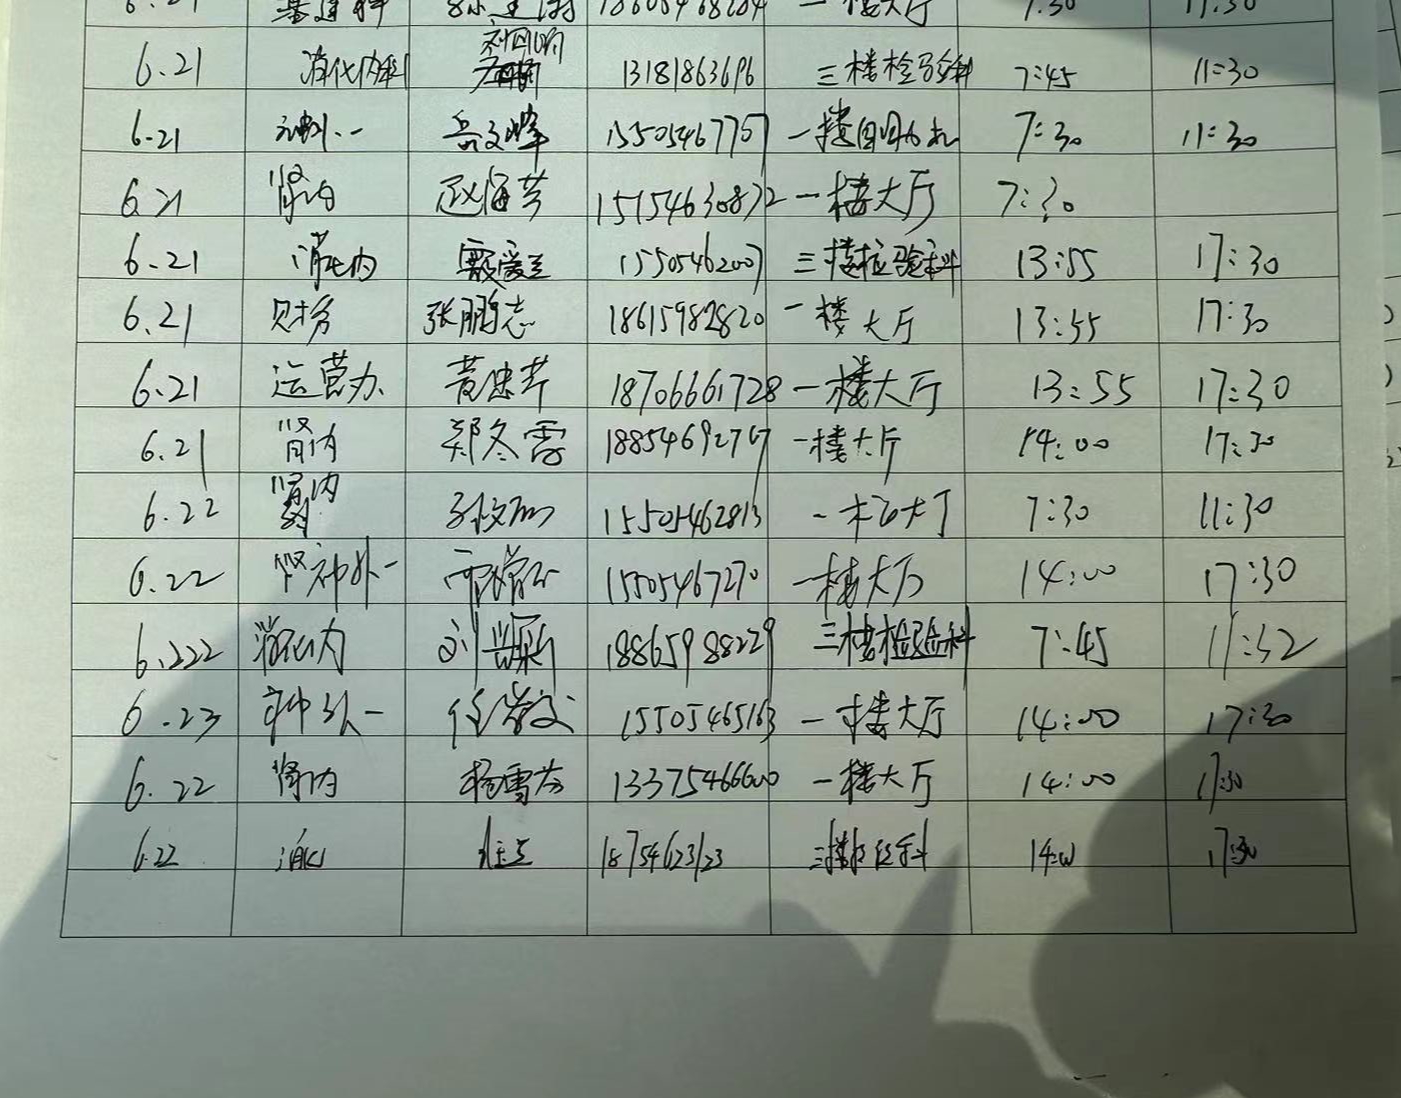 6.21 消化内科 13181863696 三楼检验科 7:45 11:30
6.21 神外一 岳文峰 15505467757 一楼自助机 7:30 11:30
6.21 肾内 赵海芳 15154630872 一楼大厅 7:30
6.21 消化内 15505462007 三楼检验科 13:55 17:30
6.21 财务 张鹏志 18615982820 一楼大厅 13:55 17:30
6.21 运营办 黄忠芹 18706661728 一楼大厅 13:55 17:30
6.21 肾内 郑冬雪 18854692767 一楼大厅 14:00 17:30
6.22 肾内 15505462813 一楼大厅 7:30 11:30
6.22 神外一 15505467270 一楼大厅 14:00 17:30
6.222 消化内 刘 18865988229 三楼检验科 7:45 11:32
6.23 神外一 任 15505465163 一楼大厅 14:00 17:30
6.22 肾内 杨雪芬 13375466600 一楼大厅 14:00 17:30
6.22 消化 18754623123 三楼检验科 14:00 17:30